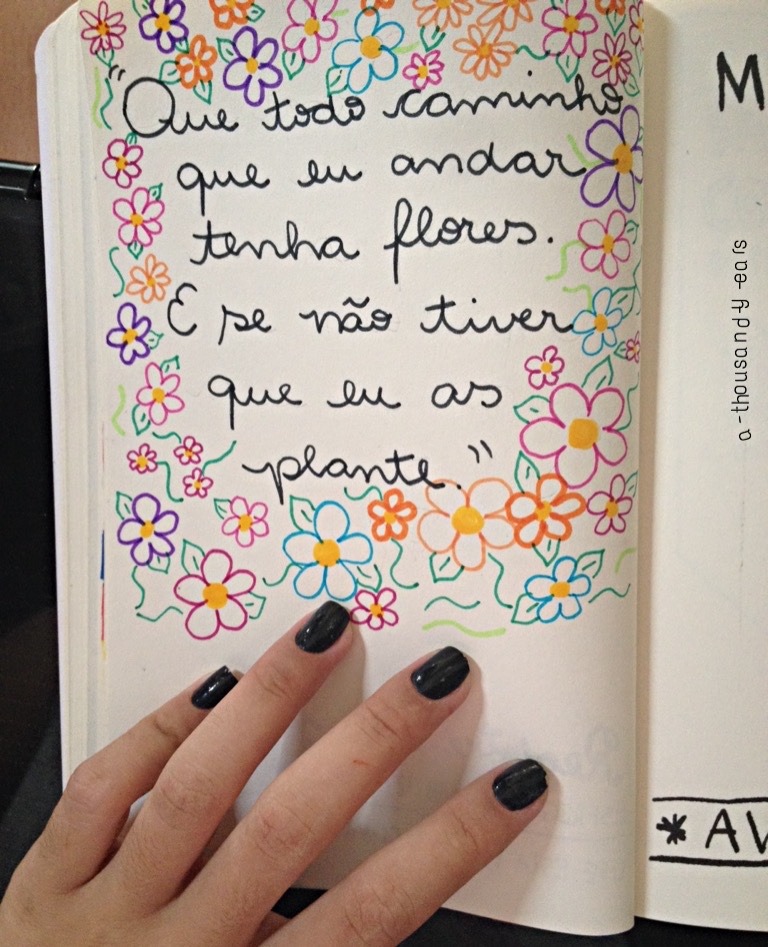 "Que todo caminho
que eu andar
tenha flores.
E se não tiver
que eu as
plante."
M
* AV
a-thousandy-ears